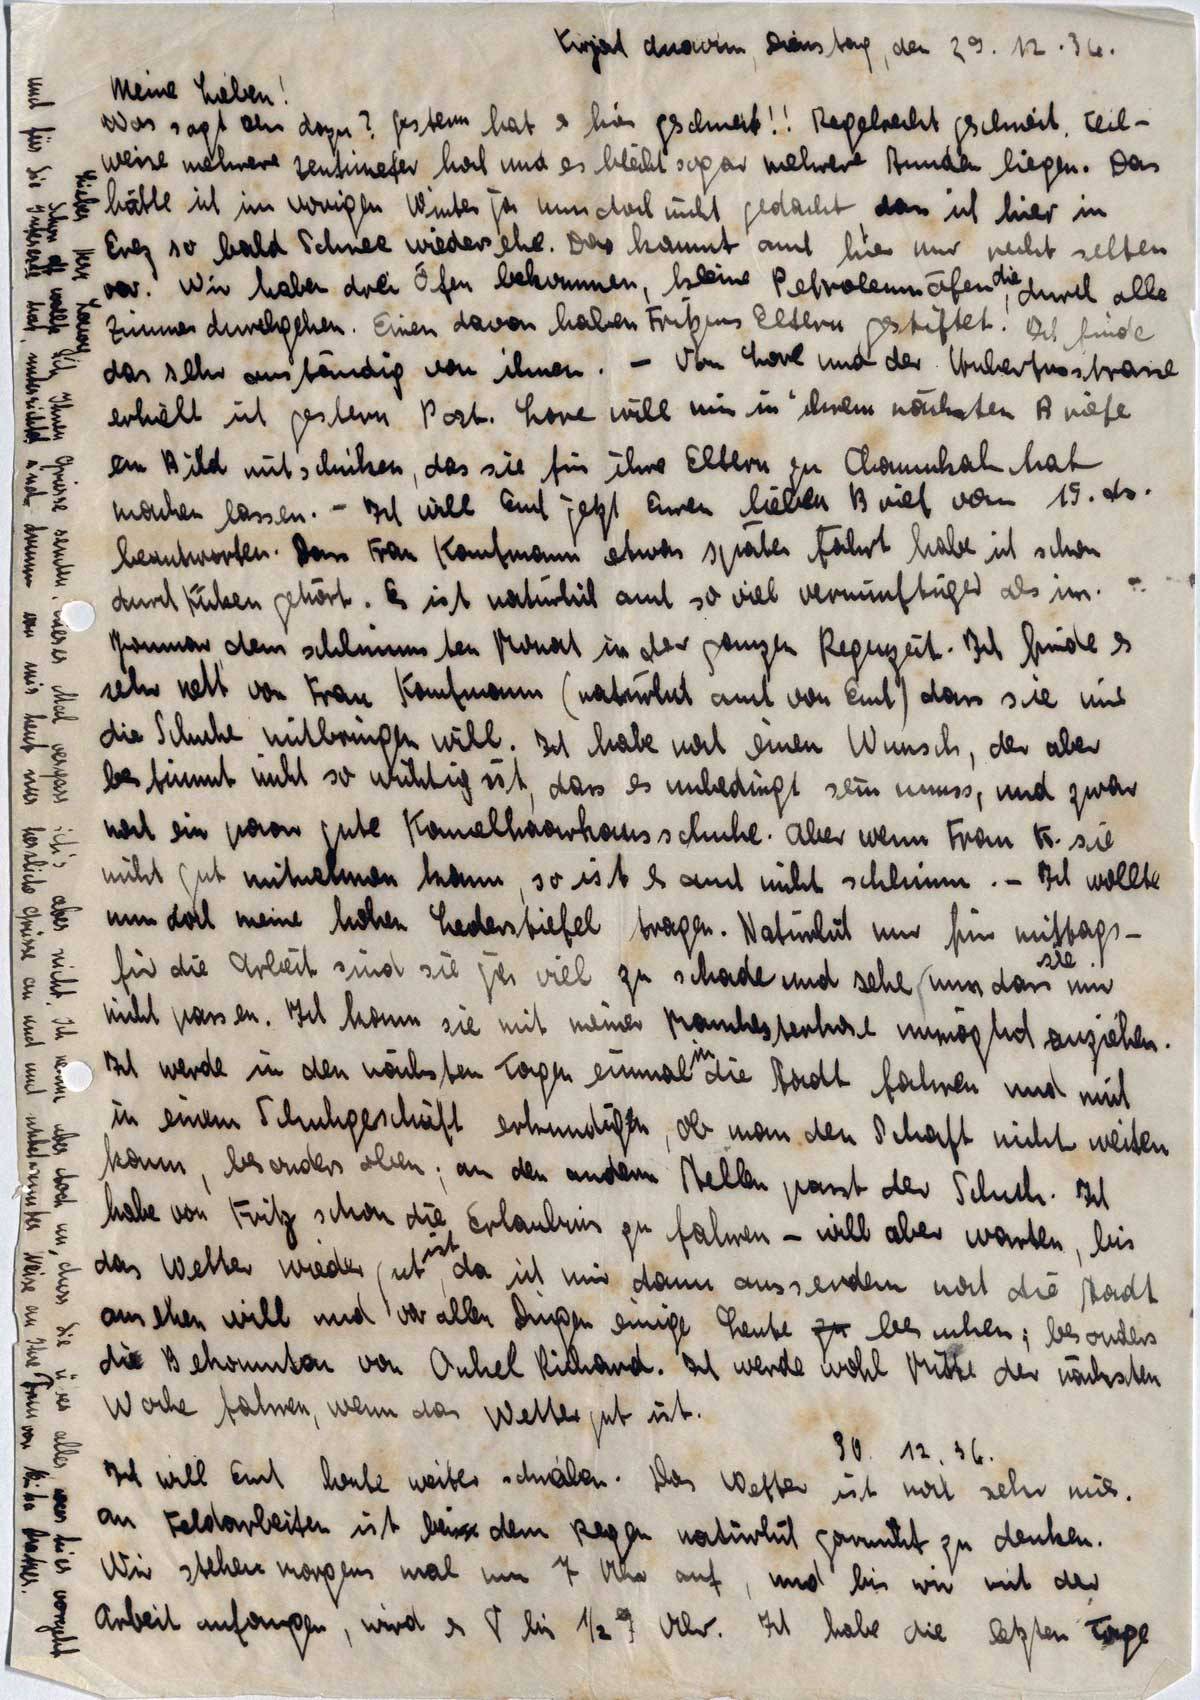 Kirjat Anavim, Dienstag, den 29. 12. 36.
Meine Lieben!
Was sagt Ihr dazu? Gestern hat es hier geschneit!! Regelrecht geschneit. Teil-
weise mehrere Zentimeter hoch und es bleibt sogar mehrere Stunden liegen. Das
hätte ich im vorigen Winter ja nun doch nicht gedacht dass ich hier in
Erez so bald Schnee wiedersehe. Das kommt auch hier nur recht selten
vor. Wir haben drei Öfen bekommen, kleine Petroleumöfen, die durch alle
Zimmer durchgehen. Einen davon haben Fritzens Eltern gestiftet! Ich finde
das sehr anständig von ihnen. – Von Lore und der Hubertusstrasse
erhielt ich gestern Post. Lore will mir in ihrem nächsten Briefe
ein Bild mitschicken, das sie für ihre Eltern zu Channukah hat
machen lassen. – Ich will Euch jetzt Euren lieben Brief vom 15. ds.
beantworten. Dass Frau Kaufmann etwas später fährt habe ich schon
durch gehört. Es ist natürlich auch so viel vernünftiger als im
Januar dem schlimmsten Monat in der ganzen Regenzeit. Ich finde es
sehr nett von Frau Kaufmann (natürlich auch von Euch) dass sie mir
die Schuhe mitbringen will. Ich habe noch einen Wunsch, der aber
bestimmt nicht so wichtig ist, dass es unbedingt sein muss, und zwar
noch ein paar gute Kamelhaarhausschuhe. Aber wenn Frau K. sie
nicht gut mitnehmen kann, so ist es auch nicht schlimm. – Ich wollte
nun doch meine hohen Lederstiefel tragen. Natürlich nur für mittags –
für die Arbeit sind sie ja viel zu schade und sehe nun dass sie mir
nicht passen. Ich kann sie mit meiner Manchesterhose unmöglich anziehen.
Ich werde in den nächsten Tagen einmal in die Stadt fahren und mich
in einem Schuhgeschäft erkundigen, ob man den Schaft nicht weiten
kann, besonders oben; an den andern Stellen passt der Schuh. Ich
habe von Fritz schon die Erlaubnis zu fahren – will aber warten, bis
das Wetter wieder gut ist, da ich mir dann ausserdem noch die Stadt
ansehen will und vor allen Dingen einige Leute besuchen; besonders
die Bekannten von Onkel Richard. Ich werde wohl Mitte der nächsten
Woche fahren, wenn das Wetter gut ist.
30. 12. 36.
Ich will Euch heute weiter schreiben. Das Wetter ist noch sehr mies.
An Feldarbeiten ist bei dem Regen natürlich garnicht zu denken.
Wir stehen morgens mal um 7 Uhr auf, und bis wir mit der
Arbeit anfangen, wird es 8 bis 1/2 9 Uhr. Ich habe die letzten Tage
Lieber Herr
Schon oft wollte ich Ihnen Grüsse senden. Dieses Mal vergass ich's aber nicht. Ich nehme aber doch an, dass Sie über alles was hier vorgeht
und für Sie Interesse hat, unterrichtet sind. Drum von mir heut nur herzliche Grüsse an und unbekannter Weise an Ihre Frau von